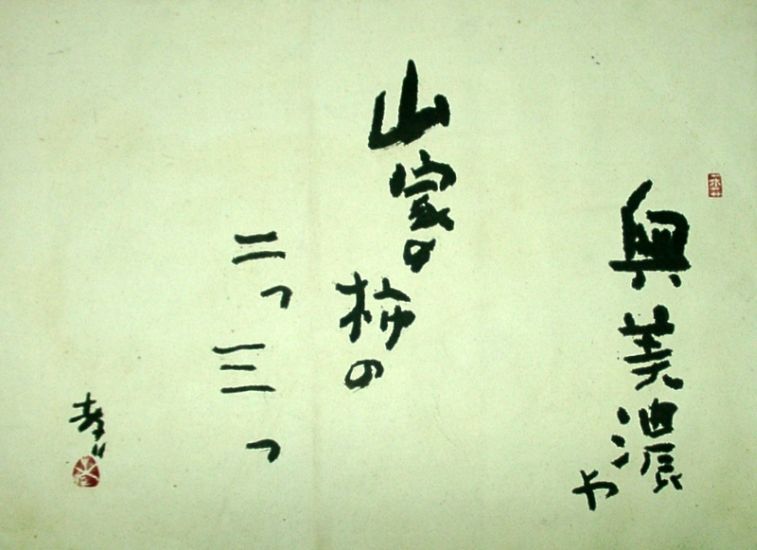 奥美濃や
山家の柿の
二つ三つ